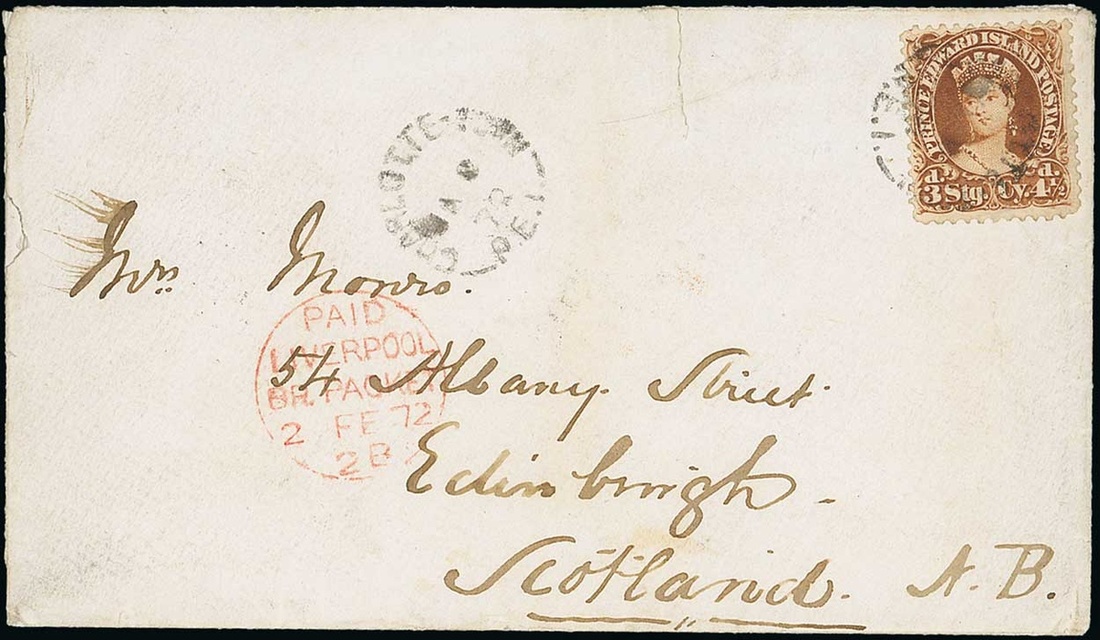 PRINCE EDWARD ISLAND POSTAGE
3d. Stg. Cy. 4d. ½
CHARLOTTE-TOWN
72
P.E.I.
Mrs Monro.
PAID
LIVERPOOL
BR. PACKET
2 FE 72
2B
54 Albany Street
Edinburgh.
Scotland. N. B.